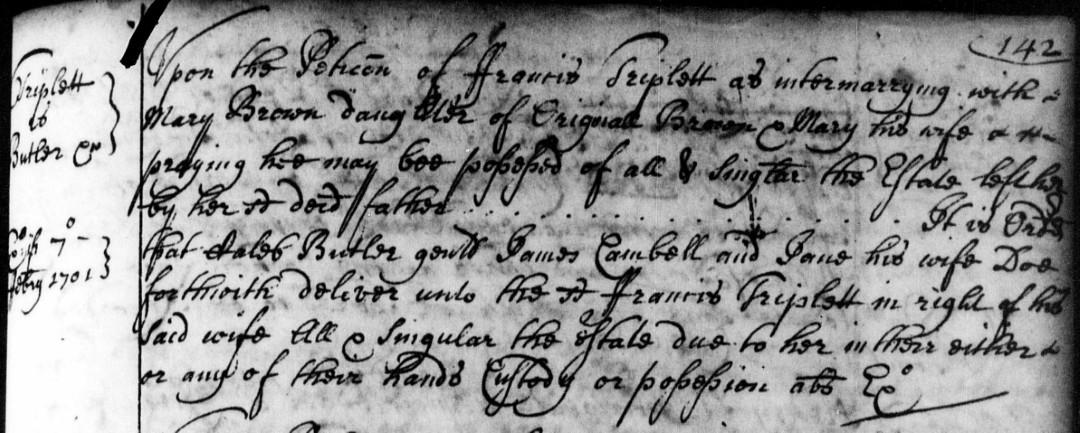 142
Triplett
vs
Butler Exr
Upon the Peticon of Francis Triplett as intermarrying with
Mary Brown daughter of Original Brown & Mary his wife &
praying hee may bee possessed of all & Singlar the Estate left her
by her sd decd father . . . . . . . . . . It is Ordd
7° Febry 1701
that Caleb Butler gent James Cambell and Jane his wife Doe
forthwith deliver unto the sd Francis Triplett in right of his
Said wife All & Singular the Estate due to her in their either &
or any of their hands Custody or possession abs Ex°
Upon